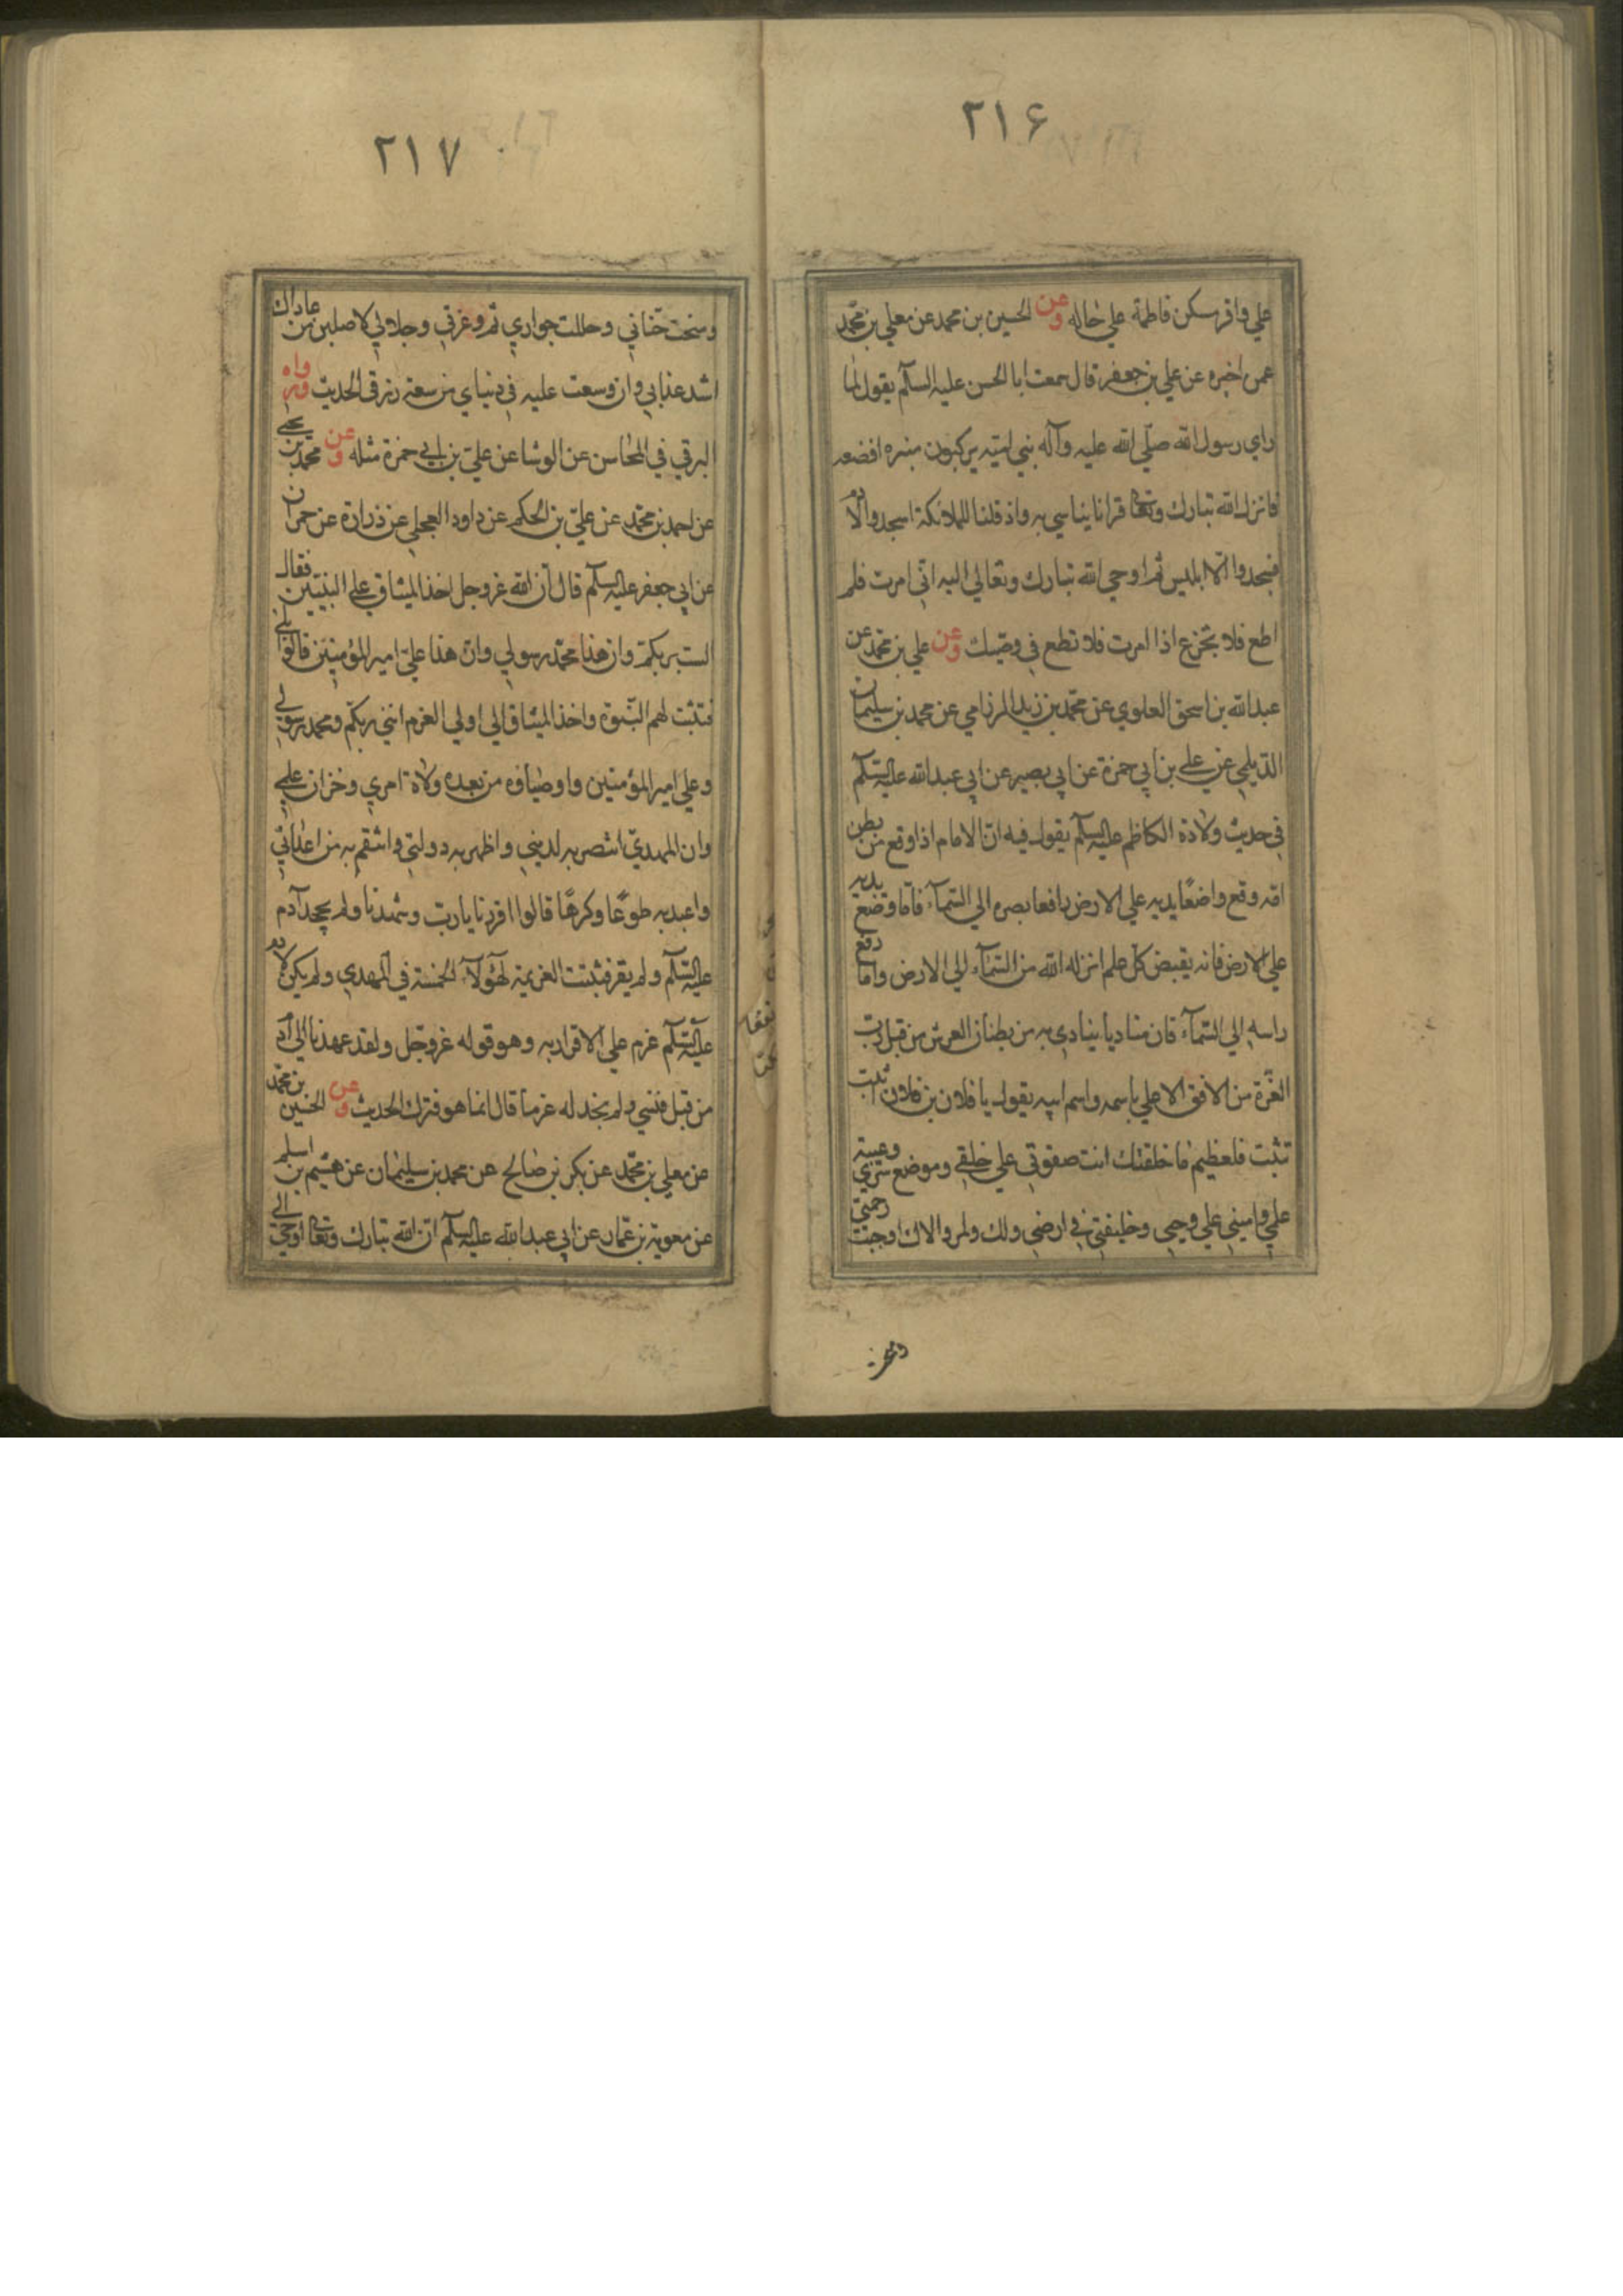 ۲۱۶
علي واقر سكن فاطمة علي حاله وعن الحسين بن محمد عن معلي بن محمد
عمن اخبره عن علي بن جعفر قال سمعت ابا الحسن عليه السلام يقول لما
راي رسول الله صلي الله عليه وآله بني امية يركبون منبره افضعه
فانزل الله تبارك وتعا قرانا يتاسي به واذ قلنا للملائكة اسجدوا لآدم
فسجدوا الا ابليس ثم اوحي الله تبارك وتعالي اليه اني امرت فلم
اطع فلا تجزع اذا امرت فلا تطع في وصيك وعن علي بن محمد عن
عبد الله بن اسحق العلوي عن محمد بن زيد المرزامي عن محمد بن سليمان
الديلمي عن علي بن ابي حمزة عن ابي بصير عن ابي عبد الله عليه السلام
في حديث ولادة الكاظم عليه السلام يقول فيه ان الامام اذا وقع من بطن
امه وقع واضعا يديه علي الارض رافعا بصره الي السمآء فاما وضع يديه
علي الارض فانه يقبض كل علم انزله الله من السمآء الي الارض واما رفع
راسه الي السمآء فان مناديا ينادي به من بطنان العرش من قبل رب
العزة من الافق الاعلي باسمه واسم ابيه يقول يا فلان بن فلان اثبت
تثبت فلعظيم ما خلقتك انت صفوتي علي خلقي وموضع سري وعيبة
علمي واميني علي وحيي وخليفتي في ارضي ولك ولمن والاك اوجبت رحمتي
۲۱۷
ومنحت جناني وحللت جواري ثم وعزتي وجلالي لاصلين من عاداك
اشد عذابي وان وسعت عليه في دنياي من سعة رزقي الحديث ورواه
البرقي في المحاسن عن الوشا عن علي بن ابي حمزة مثله وعن محمد بن يحيي
عن احمد بن محمد عن علي بن الحكم عن داود العجلي عن زرارة عن حمران
عن ابي جعفر عليه السلام قال ان الله عز وجل اخذ الميثاق علي النبيين فقال
الست بربكم وان هذا محمد رسولي وان هذا علي امير المؤمنين قالوا بلي
فتثبت لهم النبوة واخذ الميثاق الي اولي العزم انني ربكم ومحمد رسولي
وعلي امير المؤمنين واوصياؤه من بعده ولاة امري وخزان علمي
وان المهدي انتصر به لديني واظهر به دولتي وانتقم به من اعدائي
واعبد به طوعا وكرها قالوا اقررنا يا رب وشهدنا ولم يجحد آدم
عليه السلام ولم يقر فثبتت العزيمة لهؤلآء الخمسة في المهدي ولم يكن لادم
عليه السلام عزم علي الاقرار به وهو قوله عز وجل ولقد عهدنا الي آدم
من قبل فنسي ولم نجد له عزما قال انما هو فترك الحديث وعن الحسين بن محمد
عن معلي بن محمد عن بكر بن صالح عن محمد بن سليمان عن هيثم بن اسلم
عن معوية بن عمار عن ابي عبد الله عليه السلام ان الله تبارك وتعا اوحي الي